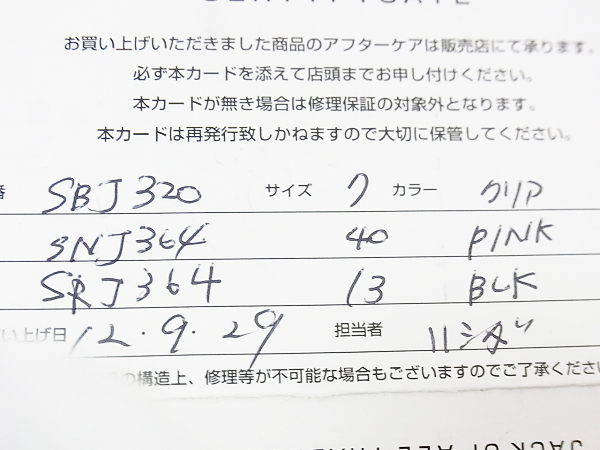 CERTIFICATE
お買い上げいただきました商品のアフターケアは販売店にて承ります。
必ず本カードを添えて店頭までお申し付けください。
本カードが無き場合は修理保証の対象外となります。
本カードは再発行致しかねますので大切に保管してください。
番 SBJ320 サイズ 7 カラー クリア
SNJ364 40 PINK
SRJ364 13 BLK
い上げ日 12.9.29 担当者
の構造上、修理等が不可能な場合もございますのでご了承くださ
JACK OF ALL